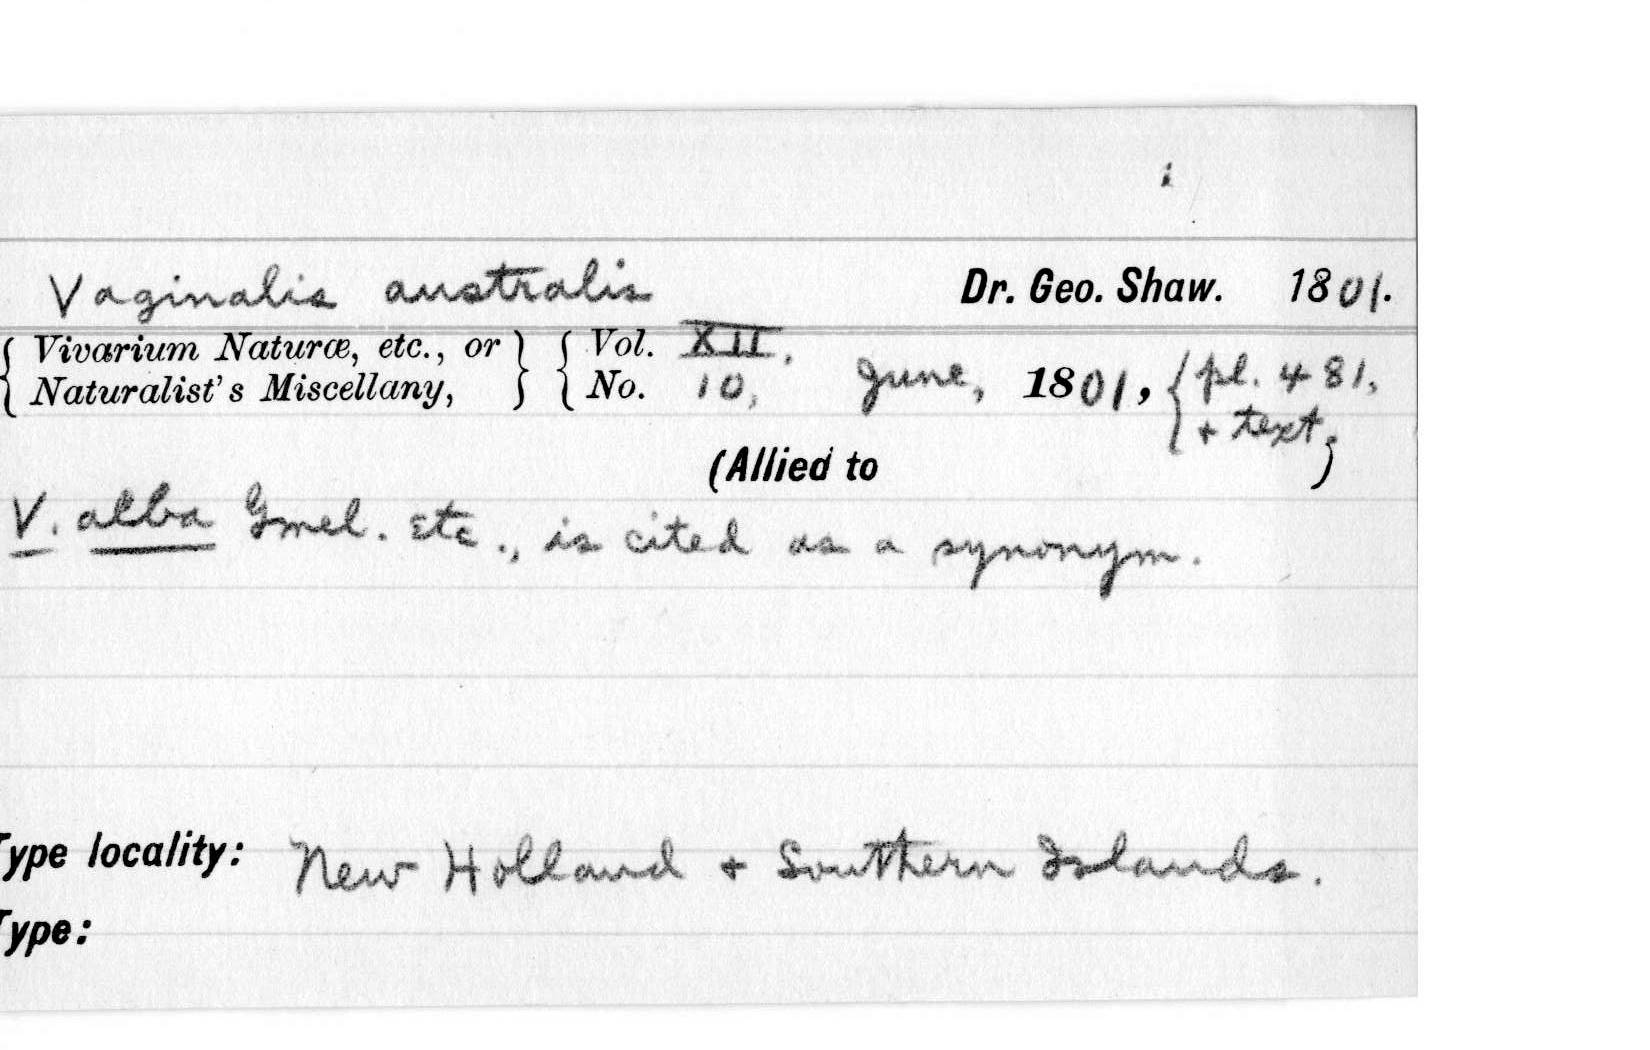 Vaginalis australis Dr. Geo. Shaw. 1801.
{ Vivarium Naturæ, etc., or } { Vol. XII,
{ Naturalist's Miscellany, } { No. 10, June, 1801, { pl. 481,
{ + text.
(Allied to )
V. alba Gmel. etc., is cited as a synonym.
Type locality: New Holland + Southern Islands.
Type: